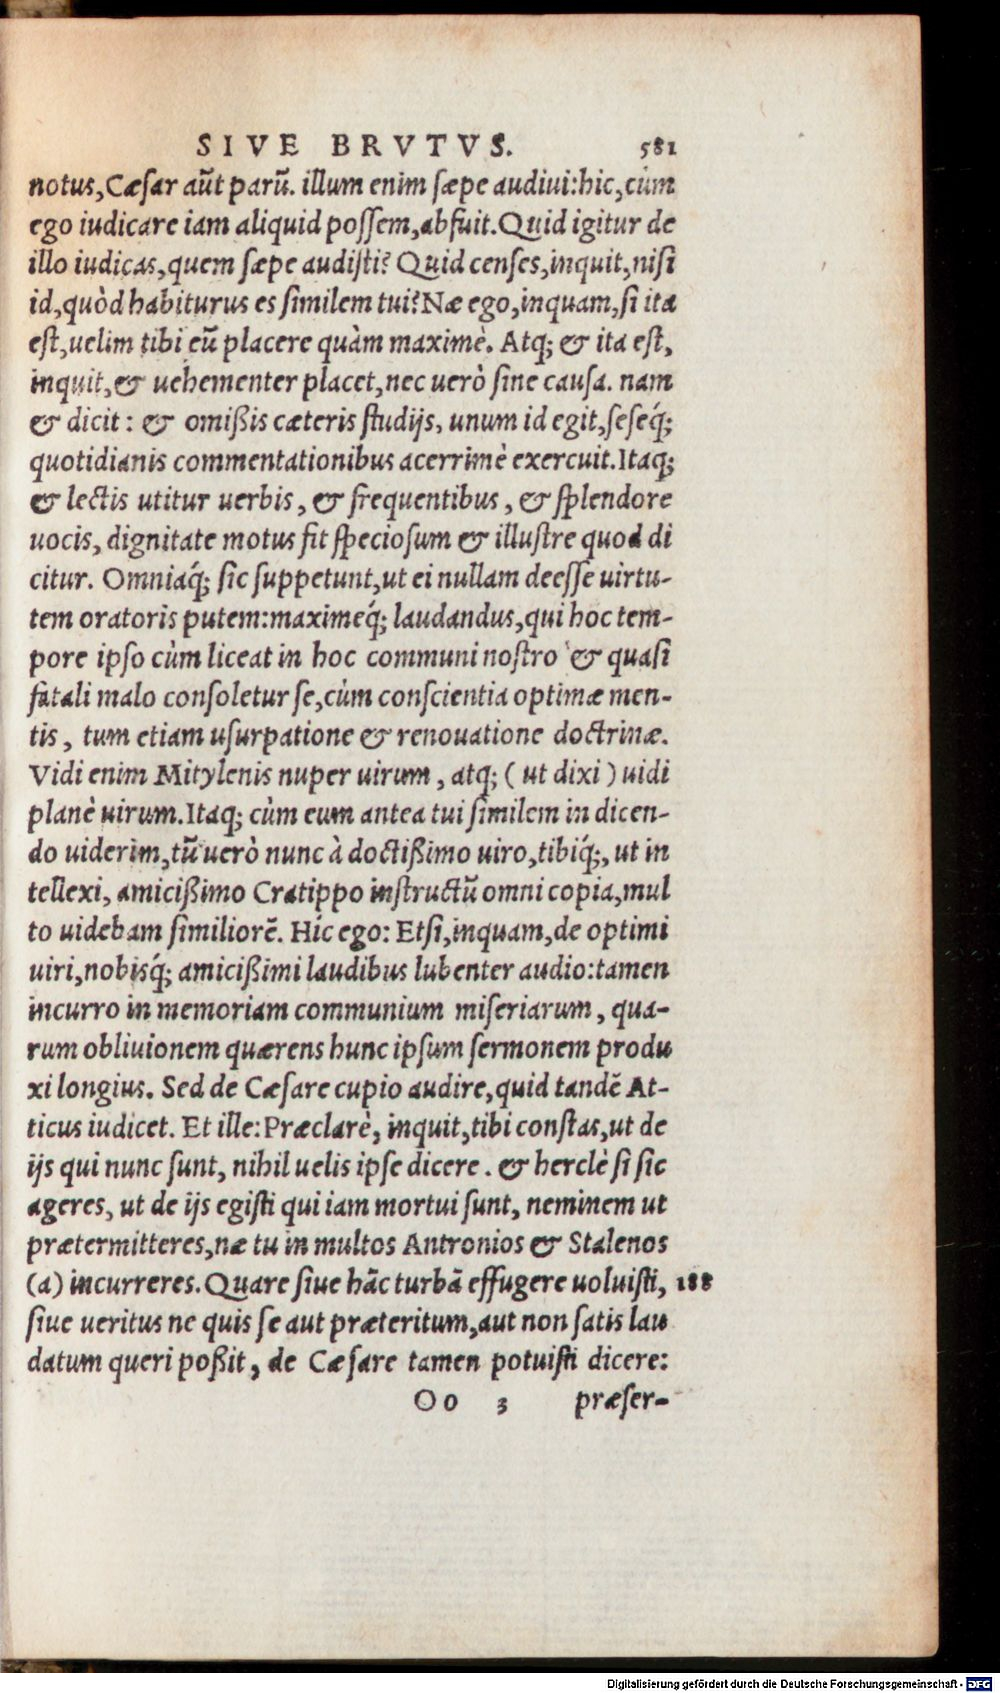 SIVE BRVTVS. 581
notus,Cæſar aūt parū. illum enim ſæpe audiui:hic,cùm
ego iudicare iam aliquid poſſem,abfuit.Quid igitur de
illo iudicas,quem ſæpe audiſti? Quid cenſes,inquit,niſi
id,quòd habiturus es ſimilem tui?Næ ego,inquam,ſi ita
eſt,uelim tibi eū placere quàm maximè. Atq; & ita eſt,
inquit,& uehementer placet,nec uerò ſine cauſa. nam
& dicit: & omißis cæteris ſtudijs, unum id egit,ſeſeq́;
quotidianis commentationibus acerrimè exercuit.Itaq;
& lectis utitur uerbis, & frequentibus, & ſplendore
uocis, dignitate motus fit ſpecioſum & illuſtre quod di
citur. Omniaq́; ſic ſuppetunt,ut ei nullam deeſſe uirtu-
tem oratoris putem:maximeq́; laudandus,qui hoc tem-
pore ipſo cùm liceat in hoc communi noſtro & quaſi
fatali malo conſoletur ſe,cùm conſcientia optimæ men-
tis, tum etiam uſurpatione & renouatione doctrinæ.
Vidi enim Mitylenis nuper uirum, atq; (ut dixi) uidi
planè uirum.Itaq; cùm eum antea tui ſimilem in dicen-
do uiderim,tū uerò nunc à doctißimo uiro,tibiq́;, ut in
tellexi, amicißimo Cratippo inſtructū omni copia,mul
to uidebam ſimiliorē. Hic ego: Etſi,inquam,de optimi
uiri,nobisq́; amicißimi laudibus lubenter audio:tamen
incurro in memoriam communium miſeriarum, qua-
rum obliuionem quærens hunc ipſum ſermonem produ
xi longius. Sed de Cæſare cupio audire,quid tandē At-
ticus iudicet. Et ille:Præclarè, inquit,tibi conſtas,ut de
ijs qui nunc ſunt, nihil uelis ipſe dicere. & herclè ſi ſic
ageres, ut de ijs egiſti qui iam mortui ſunt, neminem ut
prætermitteres,næ tu in multos Antronios & Stalenos
(a) incurreres.Quare ſiue hāc turbā effugere uoluiſti, 188
ſiue ueritus ne quis ſe aut præteritum,aut non ſatis lau
datum queri poßit, de Cæſare tamen potuiſti dicere:
Oo 3 præſer-
Digitalisierung gefördert durch die Deutsche Forschungsgemeinschaft - DFG